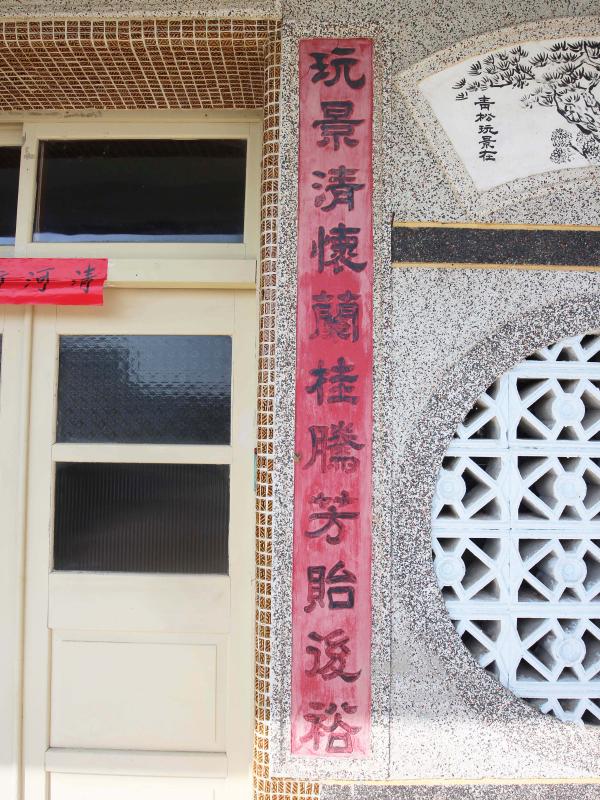 玩景清懷蘭桂騰芳貽後裕
青松玩景在
清河